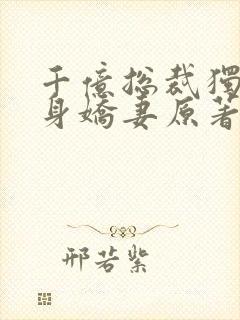 千億總裁獨
身嬌妻原著
邢若紫